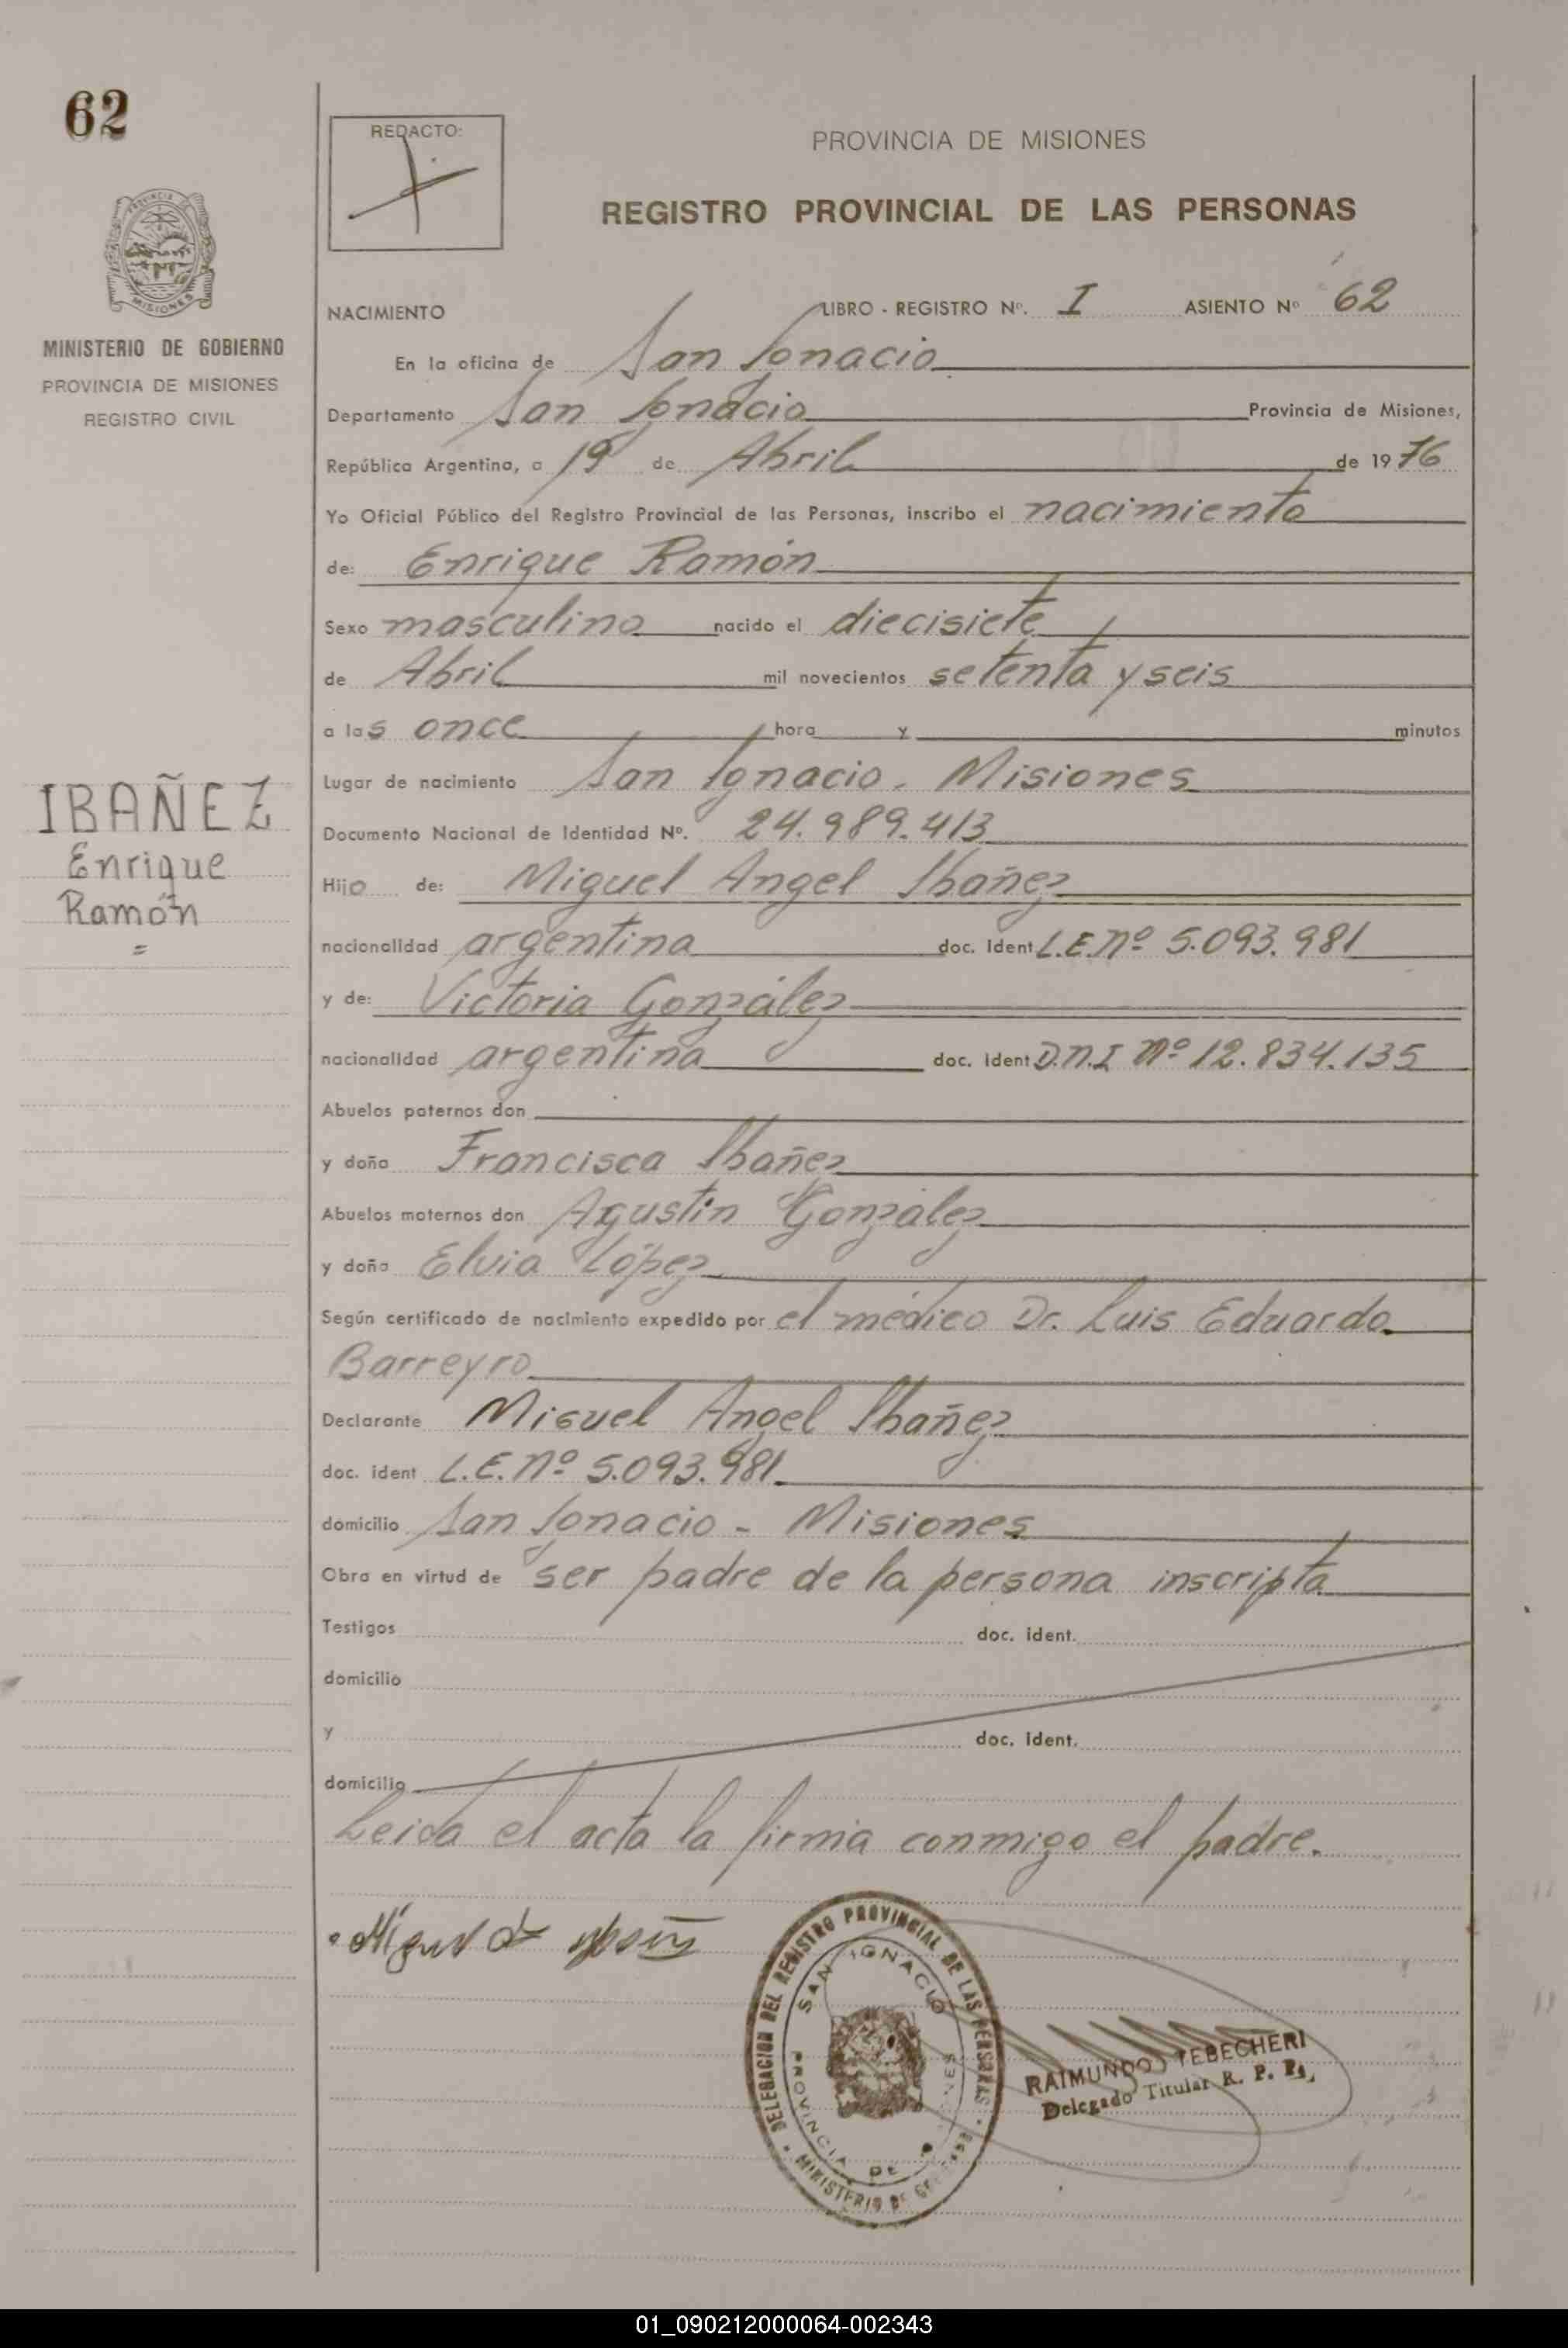 62
REDACTO:
PROVINCIA DE MISIONES
REGISTRO PROVINCIAL DE LAS PERSONAS
PROVINCIA DE
MISIONES
MINISTERIO DE GOBIERNO
PROVINCIA DE MISIONES
REGISTRO CIVIL
NACIMIENTO LIBRO - REGISTRO Nº. I ASIENTO Nº 62
En la oficina de San Ignacio
Departamento San Ignacio Provincia de Misiones,
República Argentina, a 19 de Abril de 1976
Yo Oficial Público del Registro Provincial de las Personas, inscribo el nacimiento
de: Enrique Ramón
Sexo masculino nacido el diecisiete
de Abril mil novecientos setenta y seis
a las once hora y minutos
Lugar de nacimiento San Ignacio. Misiones
Documento Nacional de Identidad Nº. 24.989.413
IBAÑEZ
Enrique
Ramón
=
Hijo de: Miguel Angel Ibañez
nacionalidad argentina doc. ident L.E.Nº 5.093.981
y de: Victoria González
nacionalidad argentina doc. ident D.N.I Nº 12.834.135
Abuelos paternos don
y doña Francisca Ibañez
Abuelos maternos don Agustín González
y doña Elvia López
Según certificado de nacimiento expedido por el médico Dr. Luis Eduardo
Barreyro
Declarante Miguel Angel Ibañez
doc. ident L.E. Nº 5.093.981
domicilio San Ignacio - Misiones
Obra en virtud de ser padre de la persona inscripta
Testigos doc. ident.
domicilio
y doc. ident.
domicilio
Leida el acta la firma conmigo el padre.
DELEGACION DEL REGISTRO PROVINCIAL DE LAS PERSONAS
SAN IGNACIO
PROVINCIA DE
MINISTERIO DE
RAIMUNDO TEBECHERI
Delegado Titular R. P. P.
01_090212000064-002343